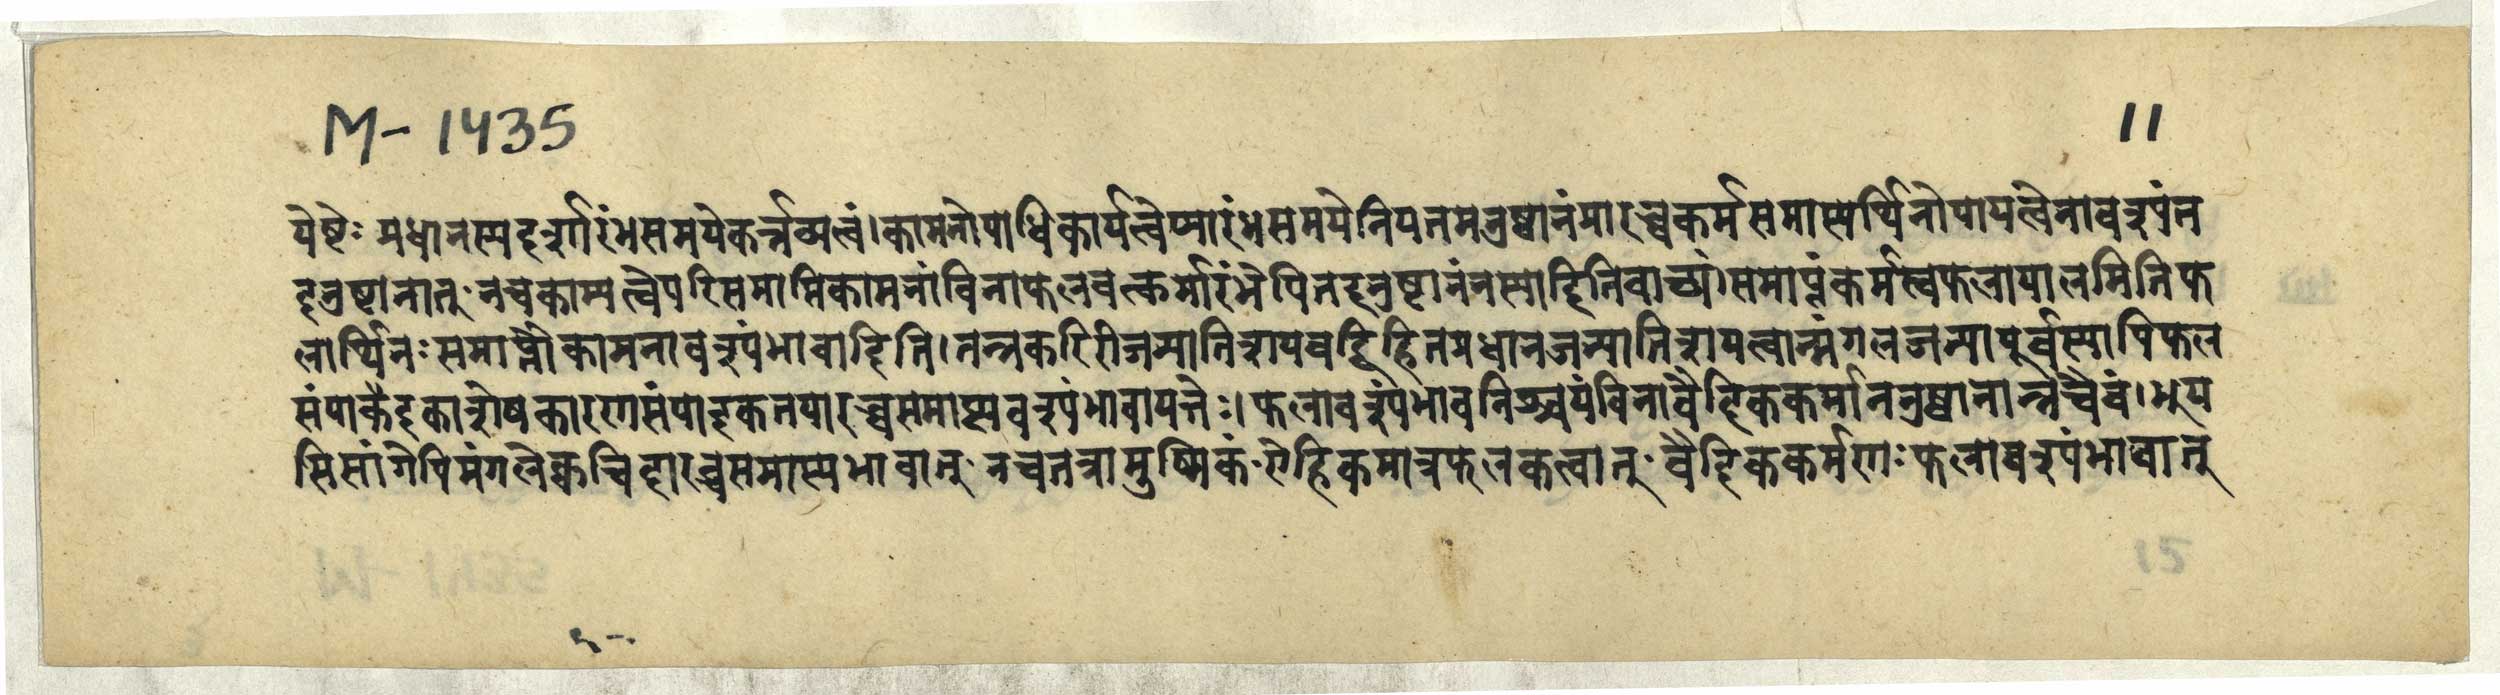 M-1435
11
येष्टेः प्रधानस्य दर्शारंभसमयेकर्त्तव्यत्वं। कामनोपाधिकार्यत्वेप्यारंभसमयेनियतमनुष्ठानंप्रारब्धकर्मसमाप्त्यर्थिनोपायत्वेनावश्यंत
दनुष्टानात् नचकाम्यत्वेपरिसमाप्तिकामनांविनाफलवत्कर्मारंभेपितदनुष्टानंनस्यादितिवाच्यं। समाप्तंकर्मस्वफलायालमितिफ
लार्थिनः समाप्तौकामनावश्यंभावादिति। तन्नकारीरीजन्यातिशयवद्विहितप्रधानजन्यातिशयत्वान्मंगलजन्यापूर्वस्यापिफल
संपाकैदृकाशेषकारणसंपादकतयारब्धसमाप्त्यवश्यंभावापत्तेः। फलावश्यंभावनिश्चयंविनावैदिककर्माननुष्ठानात्तच्चैवं। भूय
सिसांगेपिमंगलेक्वचिदारब्धसमाप्त्यभावात् नचतत्रामुष्मिकं ऐहिकमात्रफलकत्वात् वैदिककर्मणः फलावश्यंभावात्